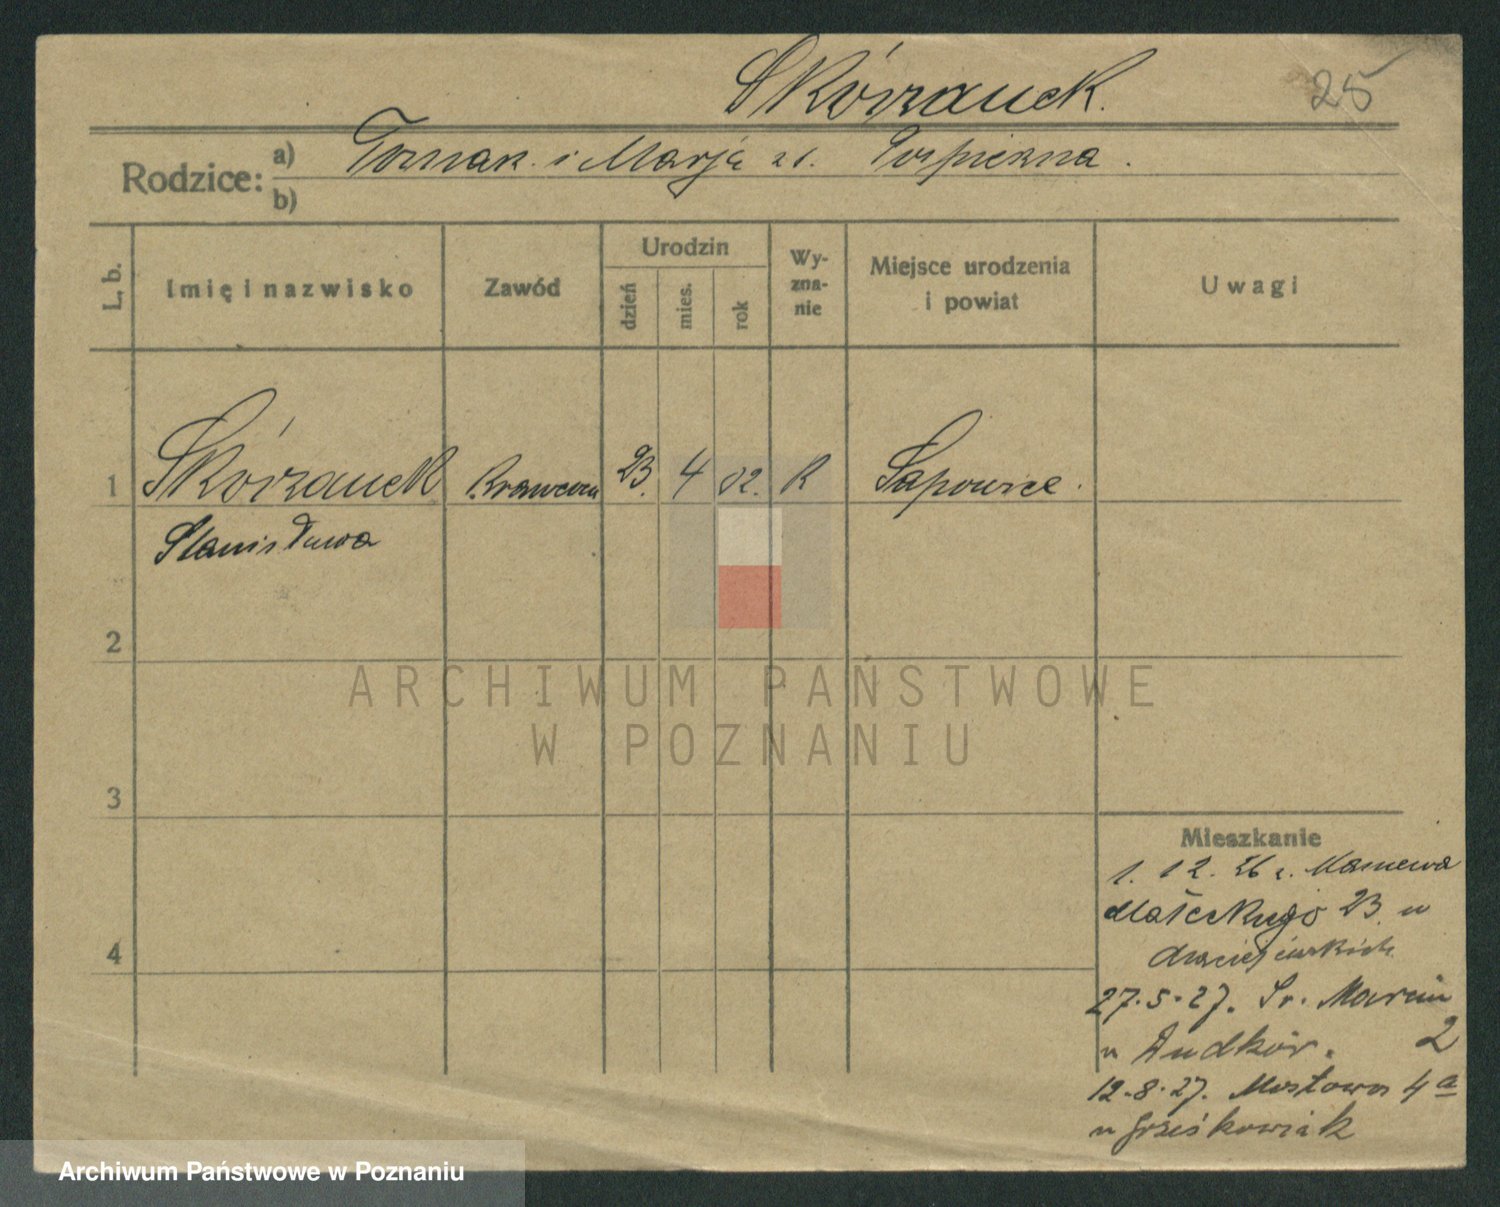 Skórzanek.
25
Rodzice: a) i Marja
b)
L. b.
Imię i nazwisko
Zawód
Urodzin
dzień
mies.
rok
Wy-
zna-
nie
Miejsce urodzenia
i powiat
Uwagi
1 Skórzanek Krawcowa 23. 4 02. R Sapowice.
Stanisława
2
ARCHIWUM PAŃSTWOWE
W POZNANIU
3
Mieszkanie
1. 12. 26 z.
Małeckiego 23. u
4
27.5.27. Św. Marcin
2
u Dudków.
12.8.27. Mostowa 4a
u Grześkowiak
Archiwum Państwowe w Poznaniu